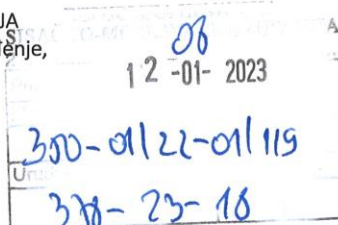 JA
enje,
06
12 -01- 2023
350-01/22-01/119
378-23-18